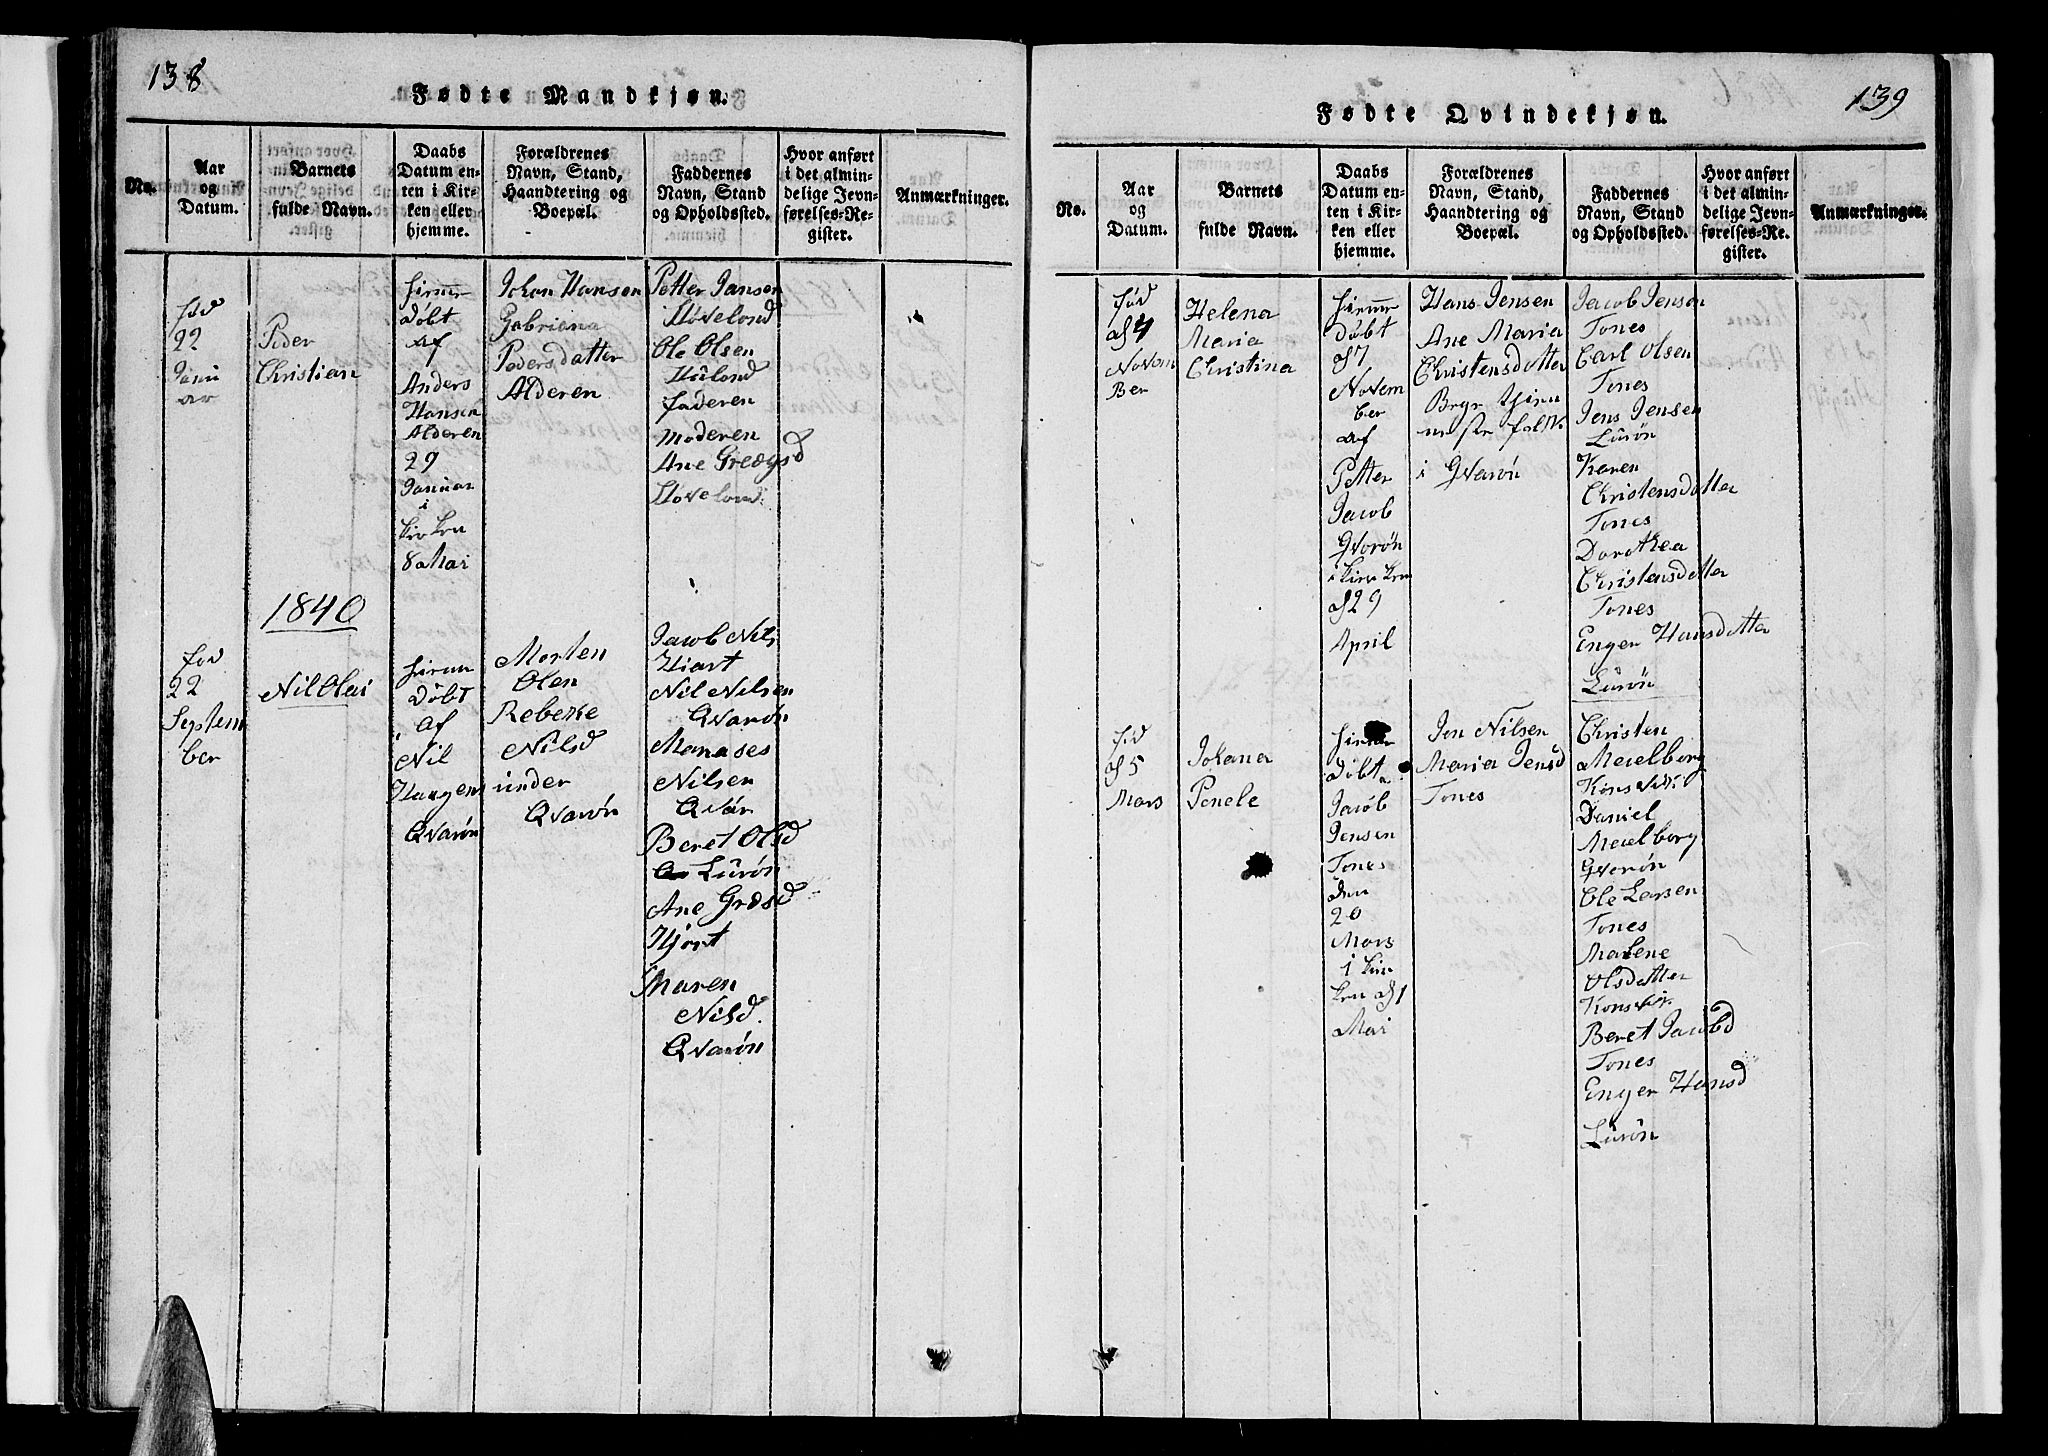 138
Fødte Mandkjøn.
No.
Aar
og
Datum.
Barnets
fulde Navn.
Daabs
Datum en-
ten i Kir-
ken eller
hjemme.
Forældrenes
Navn, Stand,
Haandtering og
Boepæl.
Faddernes
Navn, Stand
og Opholdssted.
Hvor anført
i det almin-
delige Jevn-
førelses-Re-
gister.
Anmærkninger.
fød
22
Janu
ar
Peder
Christian
döbt
af
Anders
Hansen
Alderen
29
Januar
i
kirken
8 Mai
Johan Hansen
Gabriena
Pedersdatter
Alderen
Petter Jansen
Hövelond
Ole Olsen
faderen
moderen
Ane
Hövelond
1840
fød
22
Septem
ber
Nil Olai
döbt
af
Nil
Haagens
Qvarön
Morten
Olen
Nilsd
under
Qvarön
Jacob Nils
Hiart
Nil Nilsen
Qvarön
Manases
Nilsen
Qvar
Beret Olsd
Lurön
Ane
Hjort
Maren
Nilsd
Qvarön
139
Fødte Qvindekjøn.
No.
Aar
og
Datum.
Barnets
fulde Navn.
Daabs
Datum en-
ten i Kir-
ken eller
hjemme.
Forældrenes
Navn, Stand,
Haandtering og
Boepæl.
Faddernes
Navn, Stand
og Opholdssted.
Hvor anført
i det almin-
delige Jevn-
førelses-Re-
gister.
Anmærkninger.
fød
d 4
Novem
Ber
Helena
Maria
Christina
döbt
d 7
Novem
ber
af
Petter
Jacob
Qvorön
i kirken
d 29
April
Hans Jensen
Ane Maria
Christensdatter
i Qvarön
Jacob Jenson
Tones
Carl Olsen
Tones
Jens Jensen
Lurön
Karen
Christensdatter
Tones
Dorothea
Christensdatter
Tones
Enger Hansdatter
Lurön
fød
d 5
Mars
Johana
Penele
döbt
Jacob
Jensen
Tones
den
20
Mars
i kir
ken d 1
Mai
Jon Nilsen
Maria Jensd
Tones
Christen
Meielborg
Konsvik
Daniel
Meielborg
Qvorön
Ole Larsen
Tones
Malene
Olsdatter
Konsvik
Beret Jacobd
Tones
Enger Hansd
Lurön